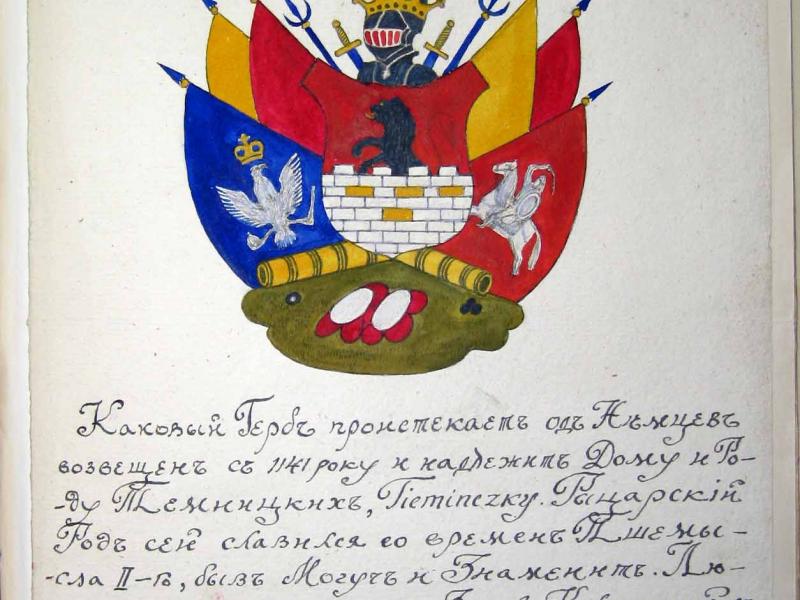 Каковый Гербъ проистекаетъ одъ Нѣмцевъ
возвещенъ съ 1141 року и надлежитъ Дому и Ро-
-ду Темницкихъ, Tieminczky. Рыцарскій
Родъ сей славился со временъ Пшемы-
-сла II-гѡ, бывъ Могучъ и Знаменитъ. Лю-